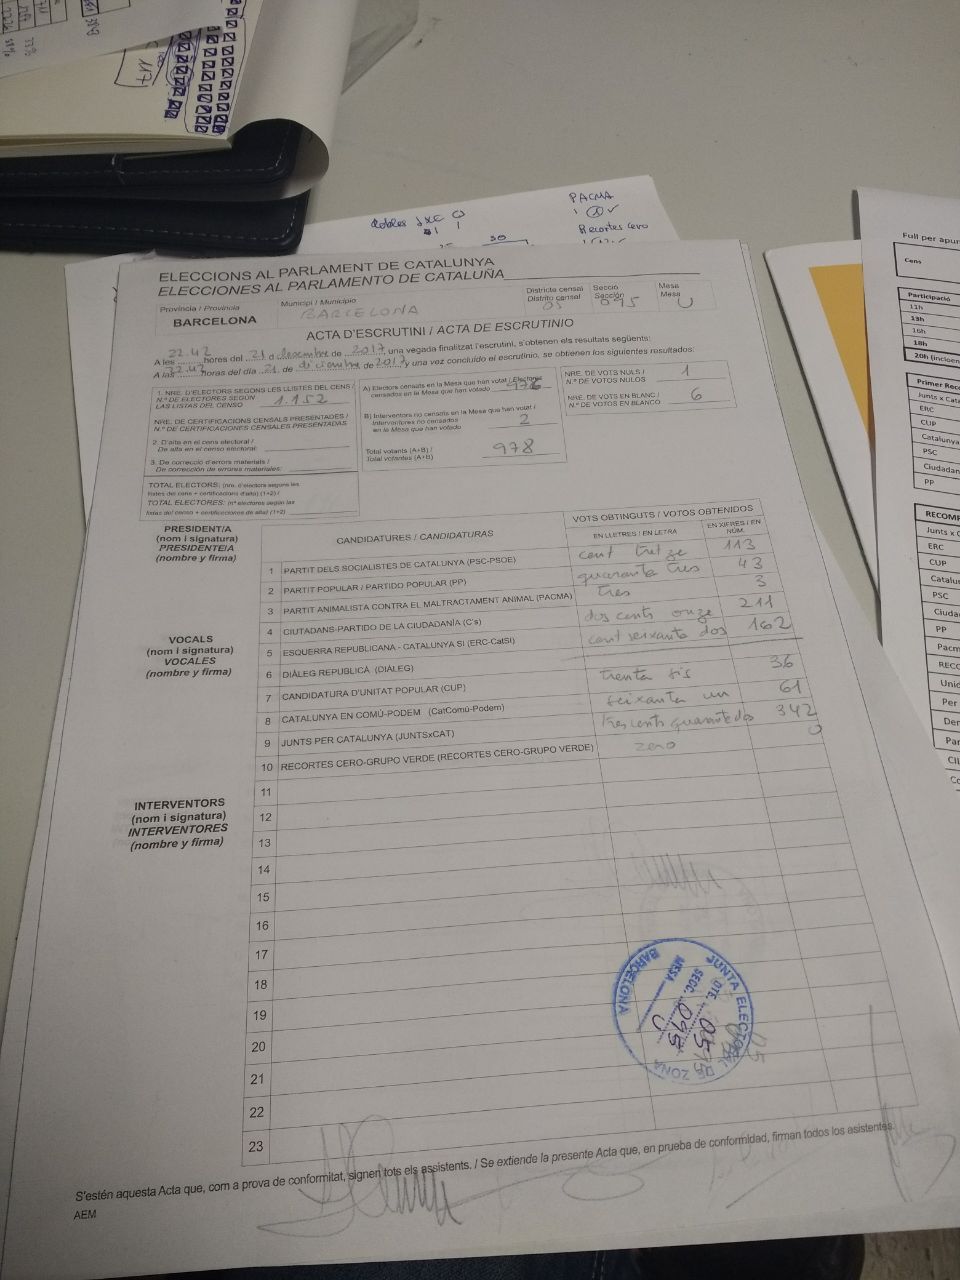 PACMA
dobles JXC
Recortes Cero
ELECCIONS AL PARLAMENT DE CATALUNYA
ELECCIONES AL PARLAMENTO DE CATALUÑA
Província / Provincia
BARCELONA
Municipi / Municipio
BARCELONA
Districte censal
Distrito censal
05
Secció
Sección
095
Mesa
Mesa
U
ACTA D'ESCRUTINI / ACTA DE ESCRUTINIO
A les 22.42 hores del 21 d desembre de 2017 una vegada finalitzat l'escrutini, s'obtenen els resultats següents:
A las 22.42 horas del día 21 de diciembre de 2017 y una vez concluido el escrutinio, se obtienen los siguientes resultados:
1. NRE. D'ELECTORS SEGONS LES LLISTES DEL CENS /
N.º DE ELECTORES SEGÚN
LAS LISTAS DEL CENSO 1.152
NRE. DE CERTIFICACIONS CENSALS PRESENTADES /
N.º DE CERTIFICACIONES CENSALES PRESENTADAS
2. D'alta en el cens electoral /
De alta en el censo electoral:
3. De correcció d'errors materials /
De corrección de errores materiales:
TOTAL ELECTORS: (nre. d'electors segons les
llistes del cens + certificacions d'alta) (1+2) /
TOTAL ELECTORES: (nº electores según las
listas del censo + certificaciones de alta) (1+2)
A) Electors censats en la Mesa que han votat / Electores
censados en la Mesa que han votado 976
B) Interventors no censats en la Mesa que han votat /
Interventores no censados
en la Mesa que han votado 2
Total votants (A+B) /
Total votantes (A+B) 978
NRE. DE VOTS NULS /
N.º DE VOTOS NULOS 1
NRE. DE VOTS EN BLANC /
N.º DE VOTOS EN BLANCO 6
PRESIDENT/A
(nom i signatura)
PRESIDENTE/A
(nombre y firma)
VOCALS
(nom i signatura)
VOCALES
(nombre y firma)
INTERVENTORS
(nom i signatura)
INTERVENTORES
(nombre y firma)
CANDIDATURES / CANDIDATURAS
VOTS OBTINGUTS / VOTOS OBTENIDOS
EN LLETRES / EN LETRA
EN XIFRES / EN NÚM.
1 PARTIT DELS SOCIALISTES DE CATALUNYA (PSC-PSOE) cent tretze 113
2 PARTIT POPULAR / PARTIDO POPULAR (PP) quaranta tres 43
3 PARTIT ANIMALISTA CONTRA EL MALTRACTAMENT ANIMAL (PACMA) tres 3
4 CIUTADANS-PARTIDO DE LA CIUDADANÍA (C's) dos cents onze 211
5 ESQUERRA REPUBLICANA - CATALUNYA SÍ (ERC-CatSí) cent seixanta dos 162
6 DIÀLEG REPUBLICÀ (DIÀLEG)
7 CANDIDATURA D'UNITAT POPULAR (CUP) trenta sis 36
8 CATALUNYA EN COMÚ-PODEM (CatComú-Podem) seixanta un 61
9 JUNTS PER CATALUNYA (JUNTSxCAT) trescents quaranta dos 342
10 RECORTES CERO-GRUPO VERDE (RECORTES CERO-GRUPO VERDE) zero 0
11
12
13
14
15
16
17
18
19
20
21
22
23
JUNTA ELECTORAL DE ZONA
BARCELONA
DTE. 05
SECC. 095
MESA U
S'estén aquesta Acta que, com a prova de conformitat, signen tots els assistents. / Se extiende la presente Acta que, en prueba de conformidad, firman todos los asistentes.
AEM
Full per apur
Cens
Participació
11h
13h
16h
18h
20h (incloen
Primer Reco
Junts x Cata
ERC
CUP
Catalunya
PSC
Ciudadan
PP
RECOMP
Junts x C
ERC
CUP
Catalu
PSC
Ciuda
PP
Pacm
RECO
Unid
Per
Der
Par
CIL
Co
117